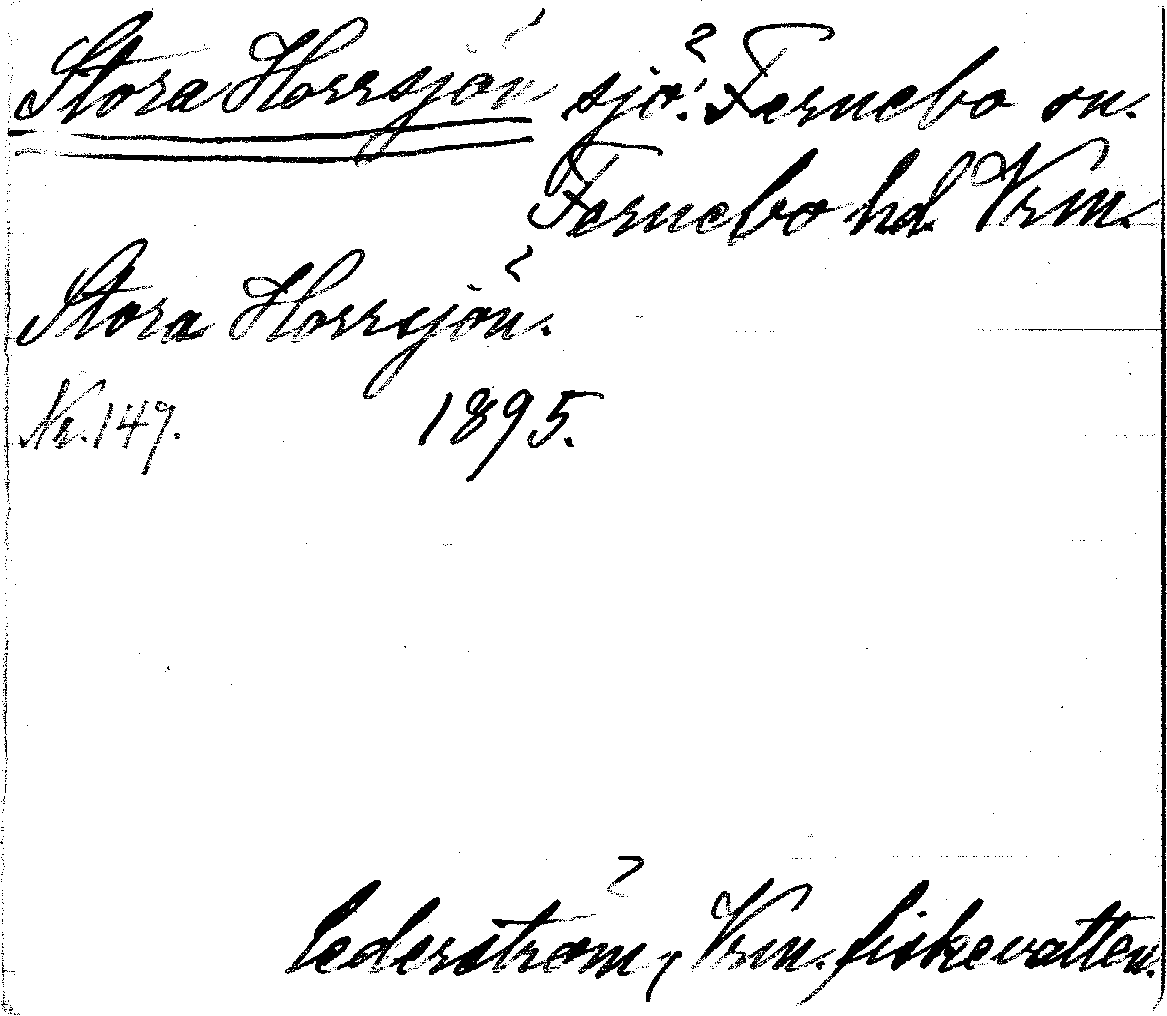 Stora Horrsjön sjö. Fernebo sn.
Fernebo hd. Vrm.
Stora Horrsjön.
Nr. 149. 1895.
Cederström, Vrm. fiskevatten.